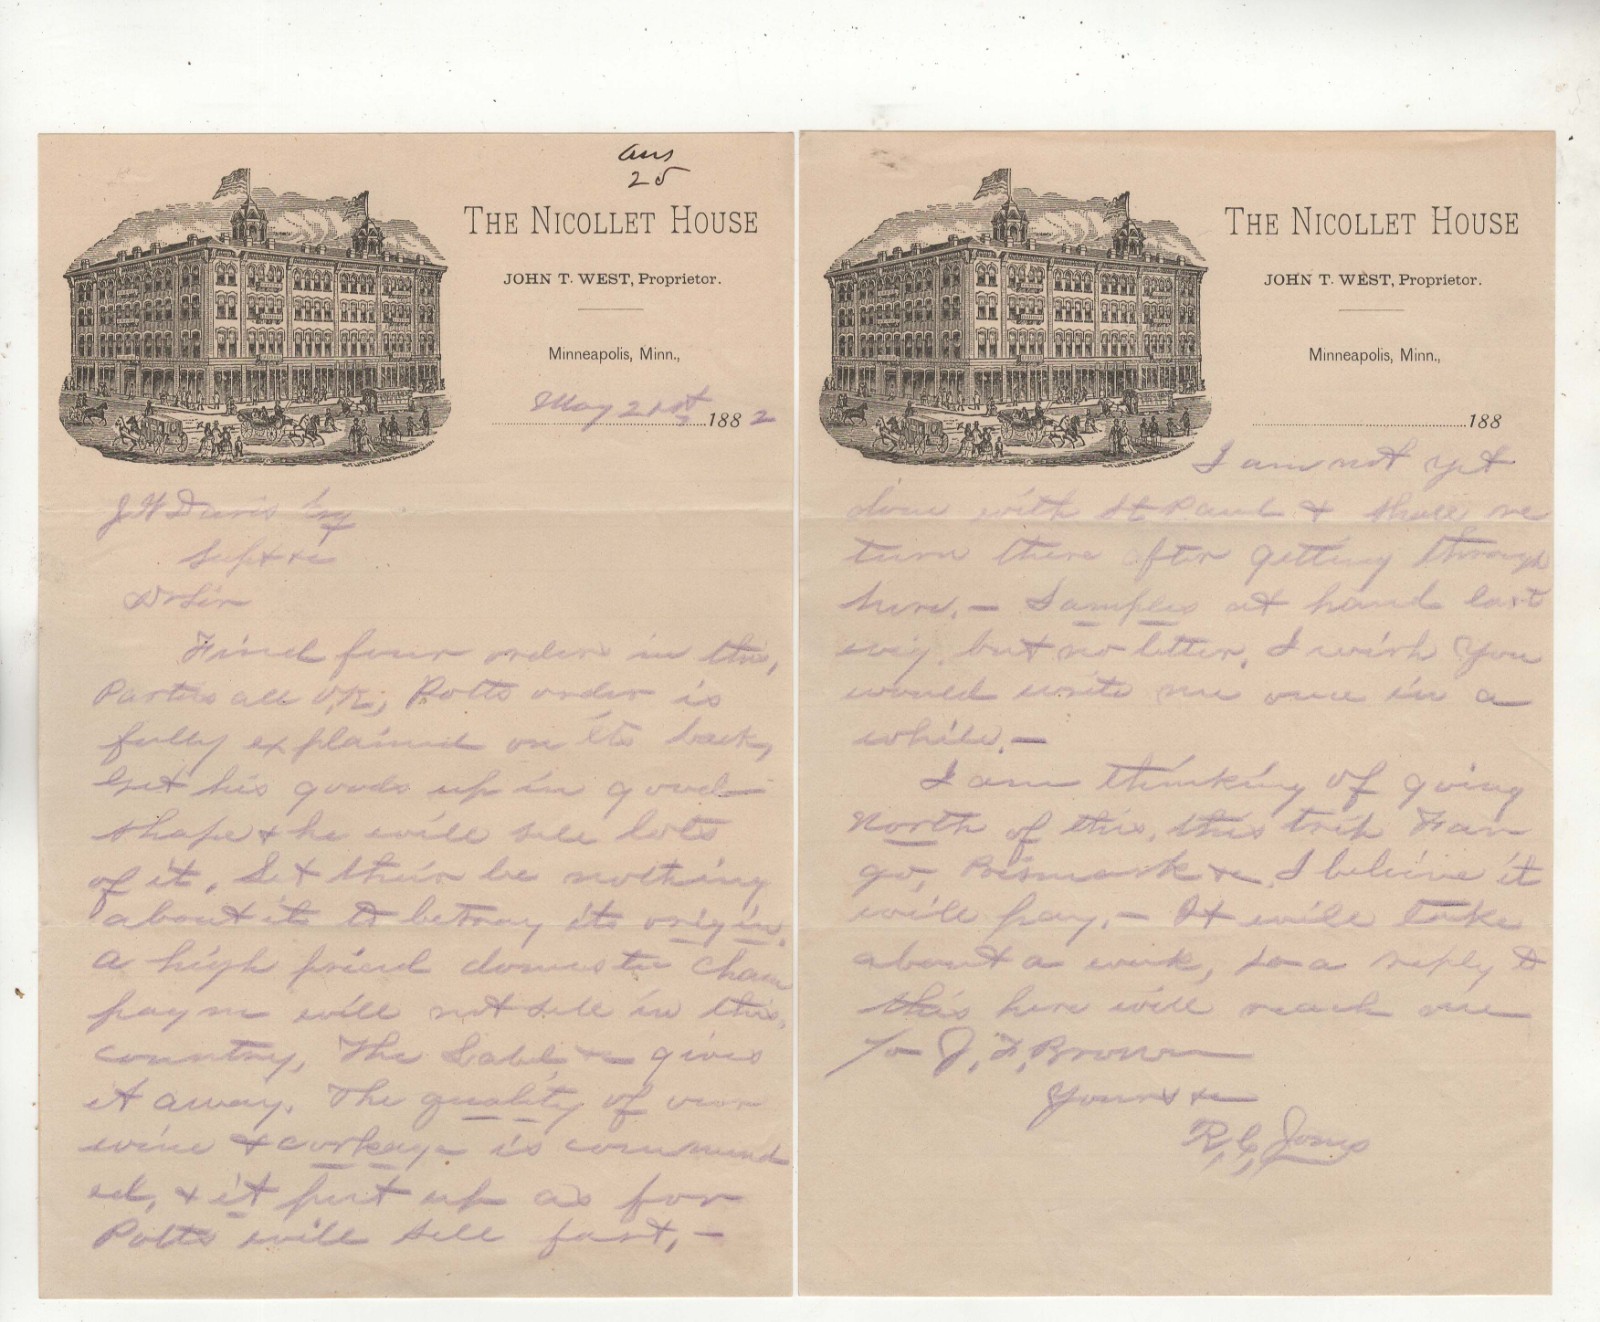 Ans
25
THE NICOLLET HOUSE
JOHN T. WEST, Proprietor.
Minneapolis, Minn.,
May 21st 1882
J W Davis Esq
Supt &c
Dr Sir
Find four orders in this,
Parties all O.K., Potts order is
fully explained on its back,
Get his goods up in good
shape & he will sell lots
of it, Let their be nothing
about it to betray its origin.
a high priced domestic Cham
pagne will not sell in this
country, The Label &c gives
it away. The quality of our
wine & corkage is commend
ed, & it put up as for
Potts will sell fast, —
THE NICOLLET HOUSE
JOHN T. WEST, Proprietor.
Minneapolis, Minn.,
188
I am not yet
done with St Paul & shall re
turn there after getting through
here. — Samples at hand last
evig, but no letter, I wish you
would write me once in a
while. —
I am thinking of going
North of this, this trip Far
go, Bismark &c, I believe it
will pay. — It will take
about a week, so a reply to
this here will reach me
℅ J. F. Brown
Yours &c
R, C, Jones